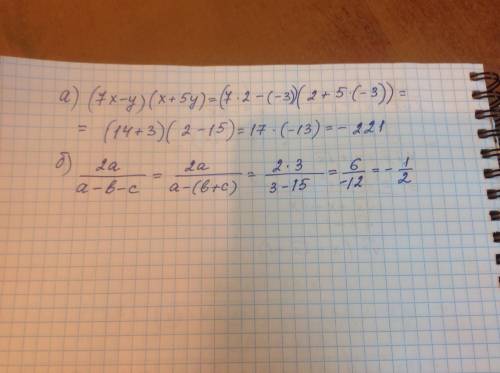 а) (7x-y)(x+5y)=(7·2-(-3)(2+5·(-3))=
= (14+3)(2-15)=17·(-13)=-221
б) 2a/(a-b-c) = 2a/(a-(b+c)) = 2·3/(3-15) = 6/-12 = -1/2